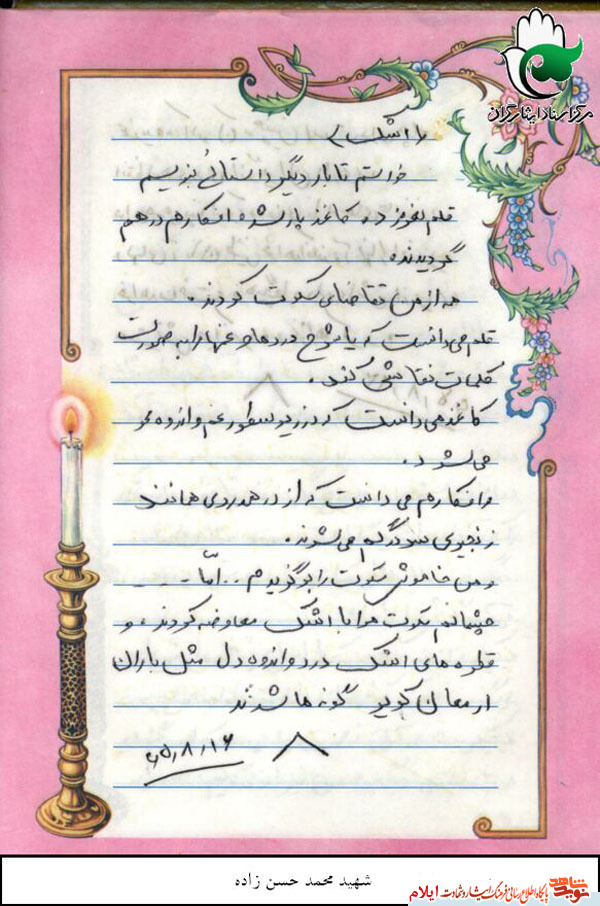 مرکز اسناد ایثارگران
(اشک)
خواستم تا بار دیگر داستانی بنویسم
قلم لغزید و کاغذ پاره شد و افکارم درهم
گردیدند
همه از من تقاضای سکوت کردند.
قلم می دانست که یا شرح دردها و غمها را به صورت
کلمات نقاشی کند.
کاغذ می دانست که در زیر سطور غم و اندوه محو
می شود.
و افکارم می دانست که از در همدردی همانند
زنجیری سردرگم می شوند.
و من خاموش سکوت را برگزیدم ... امّا ...
چشمانم سکوت مرا با اشک معاوضه کردند، و
قطره های اشک درد و اندوه دل مثل باران
ارمغان کویر گونه ها شدند
۶۵,۸,۱۶
شهید محمد حسن زاده
نوید شاهد پایگاه اطلاع رسانی فرهنگ ایثار و شهادت ایلام